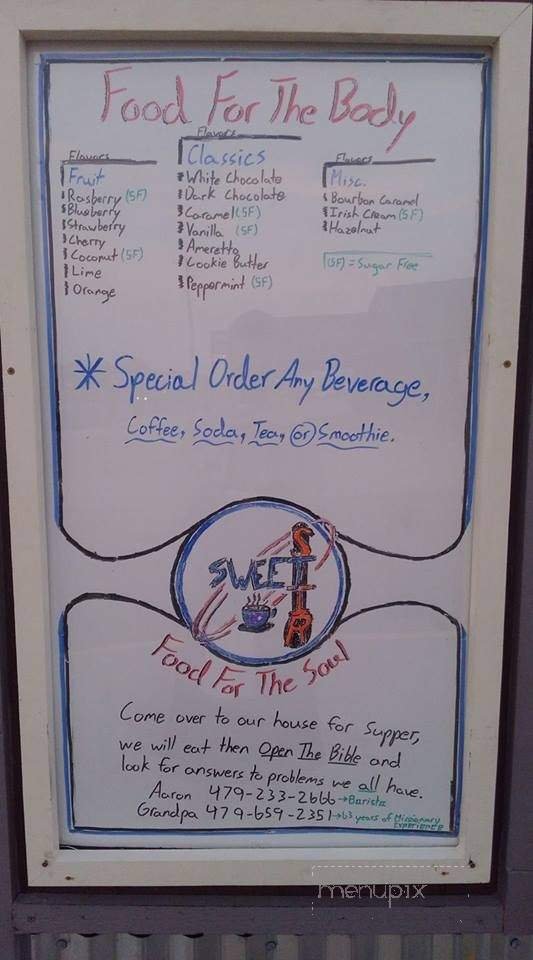 Food For The Body
Flavors
Fruit
Rasberry (SF)
Blueberry
Strawberry
Cherry
Coconut (SF)
Lime
Orange
Flavors
Classics
White Chocolate
Dark Chocolate
Caramel (SF)
Vanilla (SF)
Ameretto
Cookie Butter
Peppermint (SF)
Flavors
Misc.
Bourbon Caramel
Irish Cream (SF)
Hazelnut
(SF) = Sugar Free
* Special Order Any Beverage,
Coffee, Soda, Tea, or Smoothie.
SWEET
Food For The Soul
Come over to our house for Supper,
we will eat then Open The Bible and
look for answers to problems we all have.
Aaron 479-233-2666 → Barista
Grandpa 479-659-2351 → 63 years of Missionary
EXPERIENCE
menupix